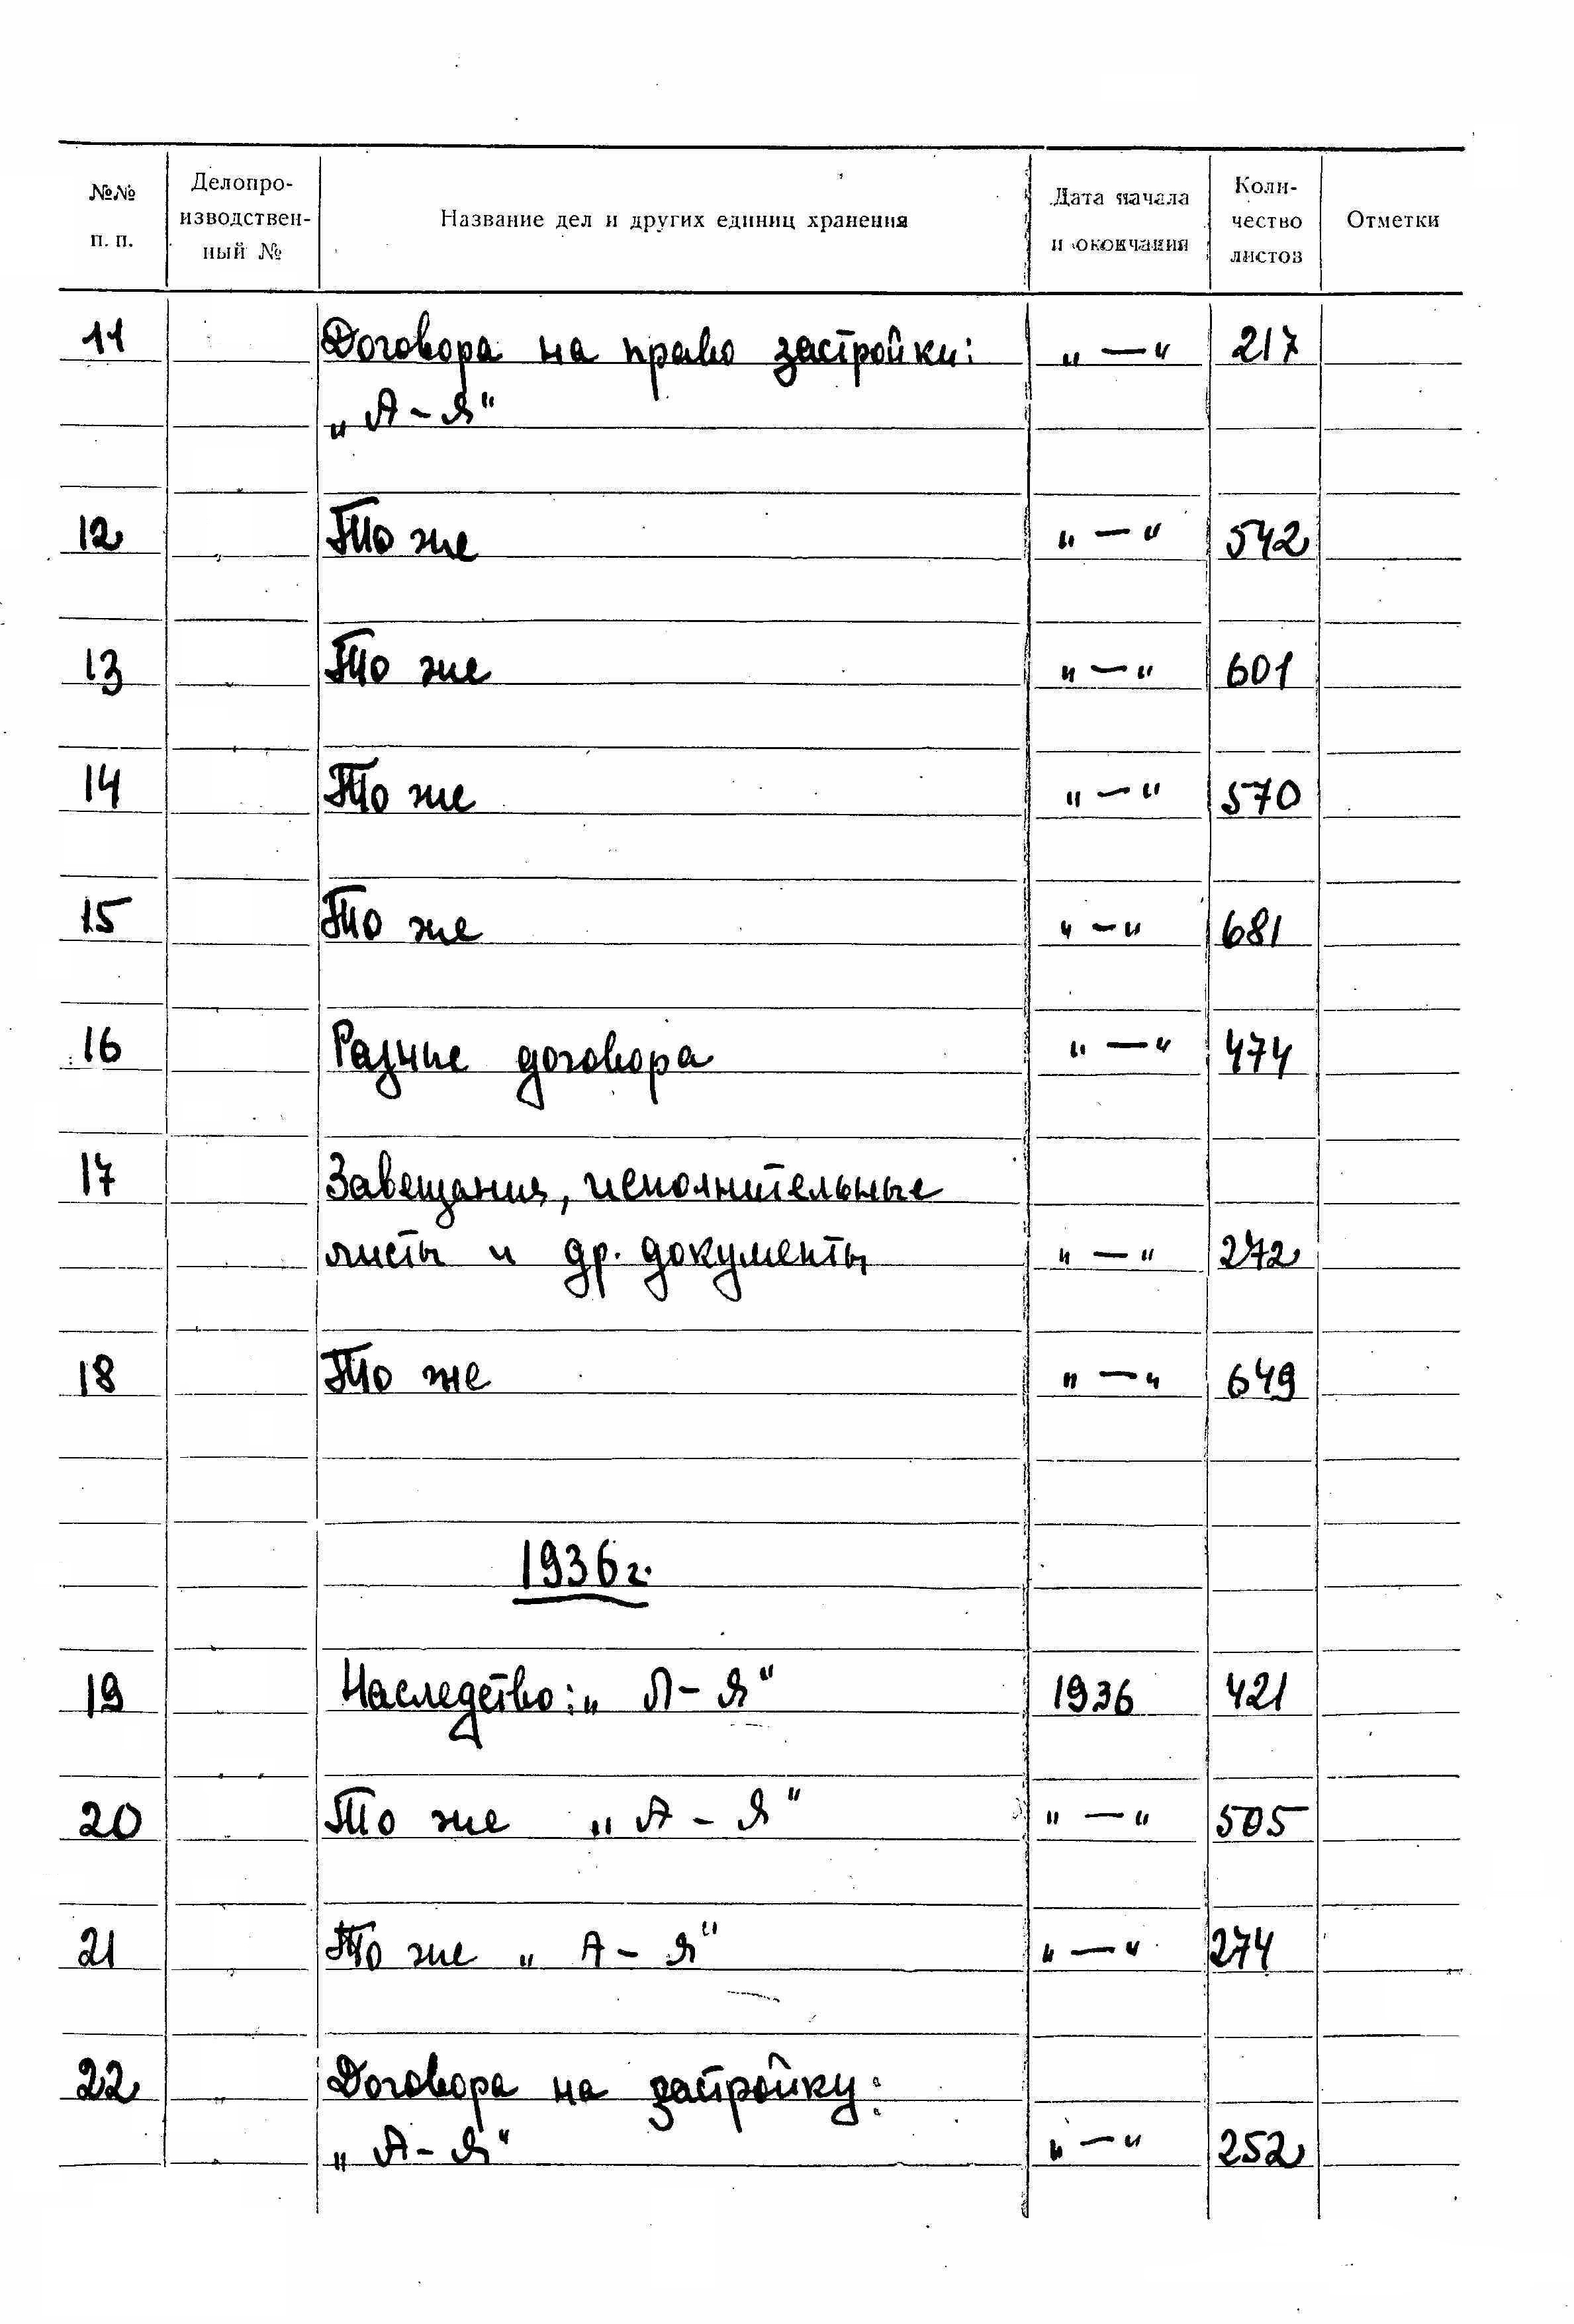 №№ п. п. Делопро-изводствен-ный № Название дел и других единиц хранения Дата начала и окончания Коли-чество листов Отметки
11 Договора на право застройки: „ — “ 217
„ А - Я “
12 То же „ — “ 542
13 То же „ — “ 601
14 То же „ — “ 570
15 То же „ — “ 681
16 Разные договора „ — “ 474
17 Завещания, исполнительные
листы и др. документы „ — “ 272
18 То же „ — “ 649
1936 г.
19 Наследство: „ Л - Я “ 1936 421
20 То же „ А - Я “ „ — “ 505
21 То же „ А - Я “ „ — “ 274
22 Договора на застройку:
„ А - Я “ „ — “ 252